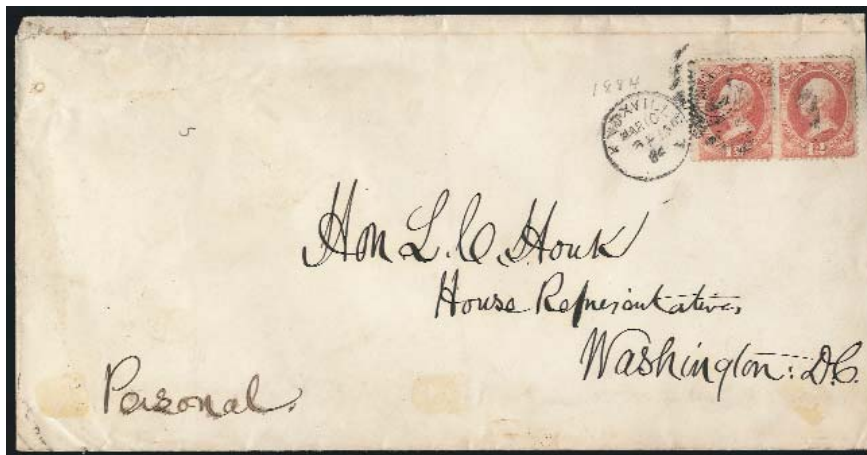 5
1884
KNOXVILLE
MAR 10
84
Hon L. C. Houk
House Representatives
Washington. D.C.
Personal.